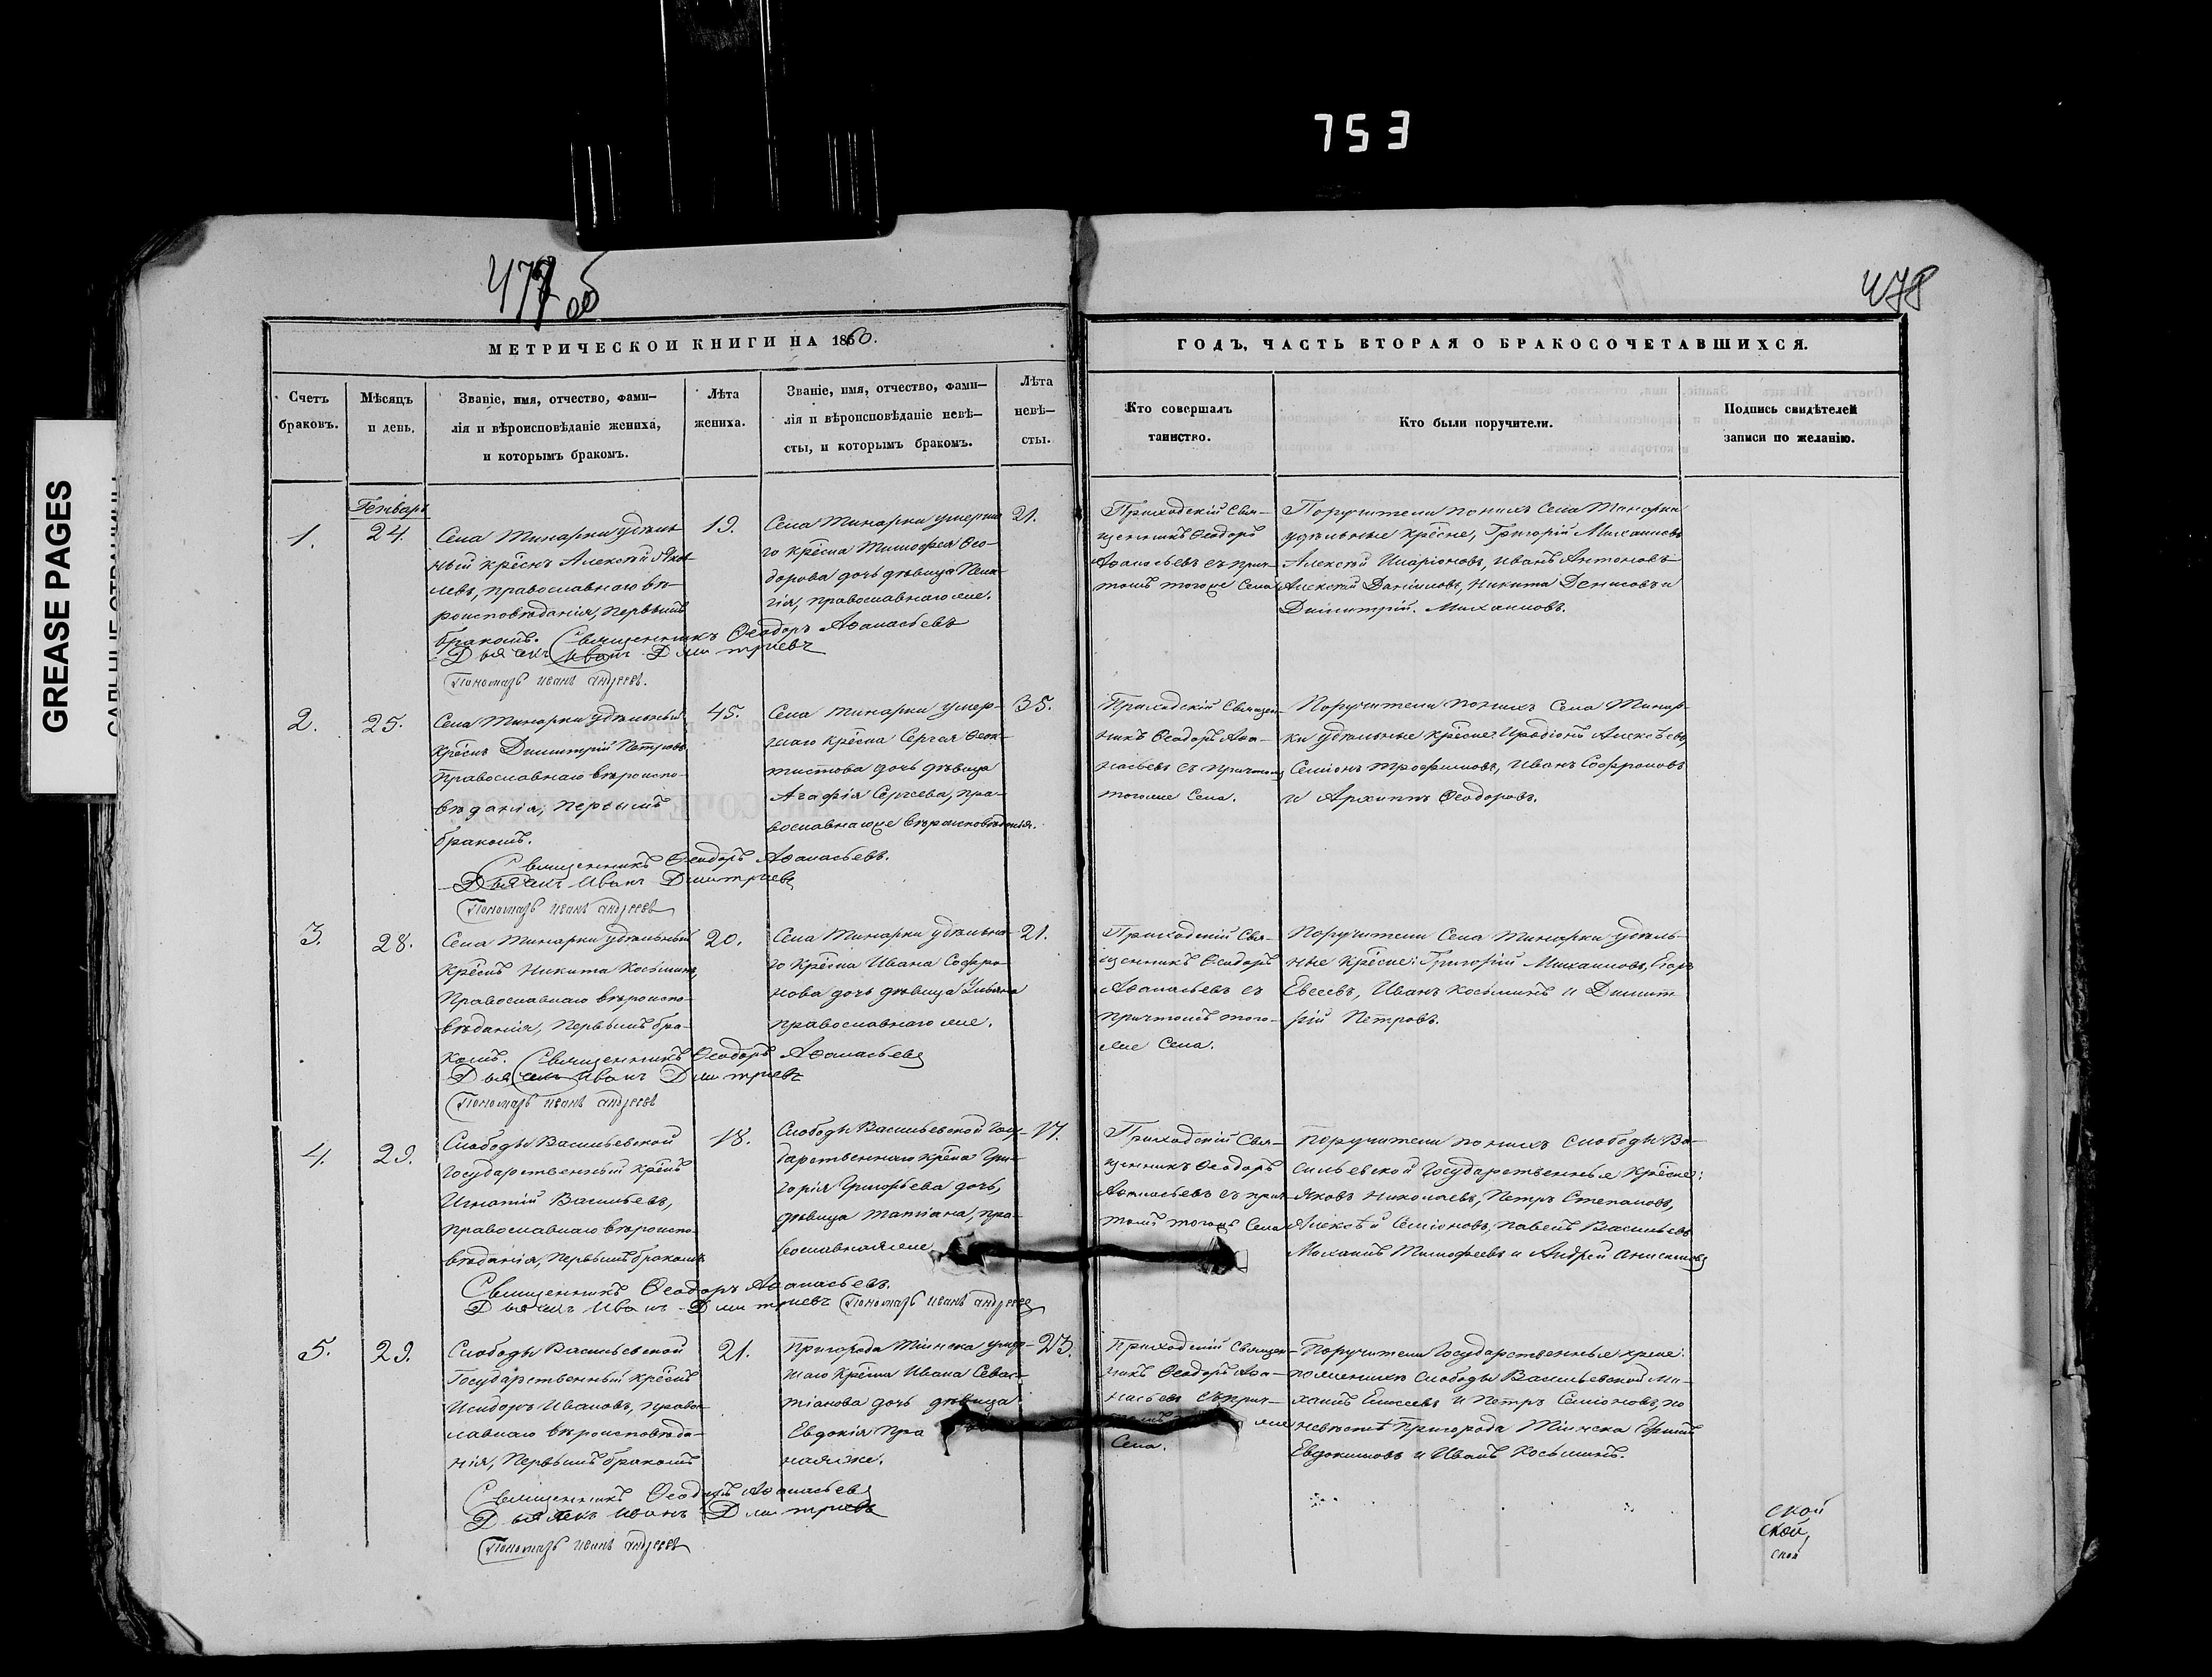 753
GREASE PAGES
477 об
478
МЕТРИЧЕСКОЙ КНИГИ НА 1860.
ГОДЪ, ЧАСТЬ ВТОРАЯ О БРАКОСОЧЕТАВШИХСЯ.
Счетъ браковъ.
Мѣсяцъ и день.
Званіе, имя, отчество, фами-
лія и вѣроисповѣданіе жениха,
и которымъ бракомъ.
Лѣта жениха.
Званіе, имя, отчество, фами-
лія и вѣроисповѣданіе невѣ-
сты, и которымъ бракомъ.
Лѣта
невѣ-
сты.
Кто совершалъ
таинство.
Кто были поручители.
Подпись свидѣтелей
записи по желанію.
1.
Генваръ
24.
Села Тинарки удѣль
ный крѣснъ Алексѣй
левъ, православнаго вѣ-
роисповѣданія, первымъ
бракомъ. Священникъ Ѳеодоръ Аѳанасьевъ
Дьячекъ Иванъ Дмитріевъ
Пономарь иванъ андреевъ.
19.
Села Тинарки умерша
го крѣсна Тимоѳея Ѳео-
дорова дочь дѣвица Пела-
гія, православнаго же.
21.
Приходскій Свя-
щенникъ Ѳеодоръ
Аѳанасьевъ съ прич-
томъ тогоже Села
Поручители по нихъ Села Тинарки
удѣльные крѣсне, Григорій Михаиловъ
Алексѣй Иларіоновъ, Иванъ Антоновъ
Алексѣй Даніиловъ, Никита Денисовъ и
Димитрій Михаиловъ.
2.
25.
Села Тинарки удѣльный
крѣснъ Димитрій Петровъ
Православнаго вѣроиспо-
вѣданія, первымъ
бракомъ.
Священникъ Ѳеодоръ Аѳанасьевъ.
Дьячекъ Иванъ Дмитріевъ
Пономарь иванъ андреевъ
45.
Села Тинарки умер-
шаго крѣсна Сергея Ѳеок-
тистова дочь дѣвица
Агафія Сергѣева, пра-
вославнагоже вѣроисповѣданія.
35.
Приходскій Священ-
никъ Ѳеодоръ Аѳа-
насьевъ съ причтомъ
тогоже Села.
Поручители по нихъ Села Тинар-
ки удѣльные крѣсне: Иродіонъ Алексѣевъ,
Семіонъ Трофимовъ, Иванъ Софроновъ
и Архиппъ Ѳеодоровъ.
3.
28.
Села Тинарки удѣльный
крѣснъ Никита Косьминъ,
Православнаго вѣроиспо-
вѣданія, первымъ бра-
комъ. Священникъ Ѳеодоръ Аѳанасьевъ
Дьячекъ Иванъ Дмитріевъ
Пономарь иванъ андреевъ
20.
Села Тинарки удѣльна-
го крѣсна Ивана Софро-
нова дочь дѣвица Ульяна
православнаго же.
21.
Приходскій Свя-
щенникъ Ѳеодоръ
Аѳанасьевъ съ
причтомъ того-
же Села.
Поручители Села Тинарки удѣль-
ные крѣсне: Григорій Михаиловъ, Егоръ
Евсеевъ, Иванъ Косьминъ и Димит
рій Петровъ.
4.
29.
Слободы Васильевской
Государственный крѣснъ
Игнатій Васильевъ,
православнаго вѣроиспо-
вѣданія, первымъ бракомъ
Священникъ Ѳеодоръ Аѳанасьевъ.
Дьячекъ Иванъ Дмитріевъ Пономарь иванъ андреевъ
18.
Слободы Васильевской Госу-
дарственнаго крѣсна Гри-
горія Григорьева дочь,
дѣвица Татіана, пра-
вославная же
17.
Приходскій Свя-
щенникъ Ѳеодоръ
Аѳанасьевъ съ прич-
томъ тогожъ Села
Поручители по нихъ слободы Ва-
сильевской Государственные крѣсне:
Яковъ Николаевъ, Петръ Степановъ,
Алексѣй Семіоновъ, Павелъ Васильевъ
Михаилъ Тимофеевъ и Андрей Анисимовъ
5.
29.
Слободы Васильевской
Государственный крѣснъ
Исидоръ Ивановъ, право-
славнаго вѣроисповѣда-
нія, первымъ бракомъ
Священникъ Ѳеодоръ Аѳанасьевъ
Дьячекъ Иванъ Дмитріевъ
Пономарь иванъ андреевъ
21.
Пригорода Тіинска умер-
шаго крѣсна Ивана Севас-
тіанова дочь дѣвица
Евдокія Пра
ная же.
23.
Приходскій Священ-
никъ Ѳеодоръ Аѳа-
насьевъ съ прич-
томъ же
Села.
Поручители Государственные крсне:
по женихѣ Слободы Васильевской Ми-
хаилъ Елисеевъ и Петръ Семіоновъ, по
невѣстѣ Пригорода Тіинска
Евдокимовъ и Иванъ Косьминъ.
ской
ской,
ской